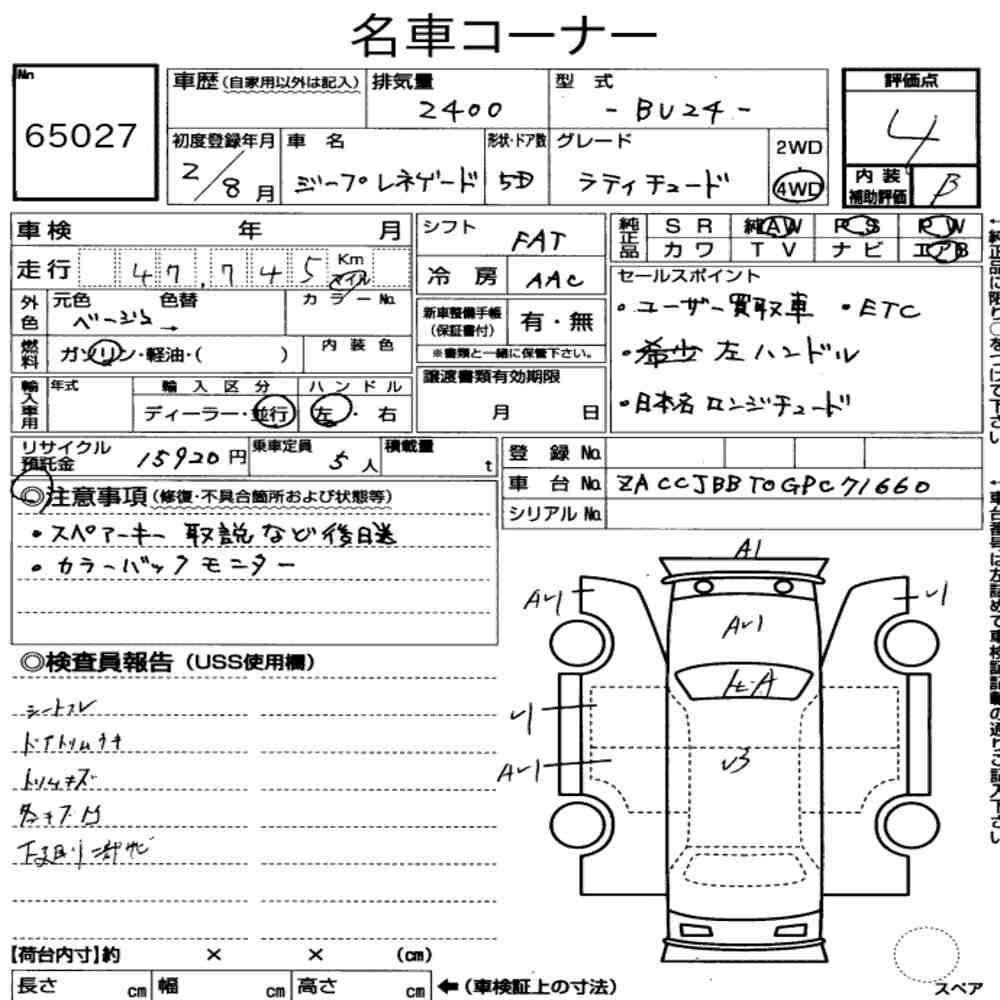 名車コーナー
No
65027
車歴(自家用以外は記入)
排気量
2400
型 式
- BU24 -
評価点
4
内装補助評価
B
初度登録年月
2/8月
車 名
ジープ レネゲード
形状・ドア数
5D
グレード
ラティチュード
2WD
4WD
車検 年 月
走行 47,745 Km マイル
シフト
FAT
冷房
AAC
純正品
SR 純AW PS PW
カワ TV ナビ エアB
外色
元色 色替
ベージュ →
カラーNo.
新車整備手帳(保証書付)
有・無
※書類と一緒に保管下さい。
燃料
ガソリン・軽油・( )
内装色
セールスポイント
・ユーザー買取車 ・ETC
・希少 左ハンドル
・日本名 ロンジチュード
輸入車用
年式
輸入区分
ディーラー・並行
ハンドル
左・右
譲渡書類有効期限
月 日
リサイクル預託金
15920円
乗車定員
5人
積載量
t
登録No.
車台No. ZACCJBBT0GPC71660
シリアルNo.
◎注意事項(修復・不具合箇所および状態等)
・スペアーキー 取説など後日送
・カラーバックモニター
◎検査員報告(USS使用欄)
シートスレ
ドアトリムキキ
トリムキズ
各キズ凹
下廻り一部サビ
A1
A〃1
〃1
A〃1
ヒ-A
〃1
A〃1
〃3
【荷台内寸】約 × × (cm)
長さ cm 幅 cm 高さ cm
←(車検証上の寸法)
スペア
←純正品に限り○をつけて下さい
←車台番号は左詰めで車検証記載の通りご記入下さい